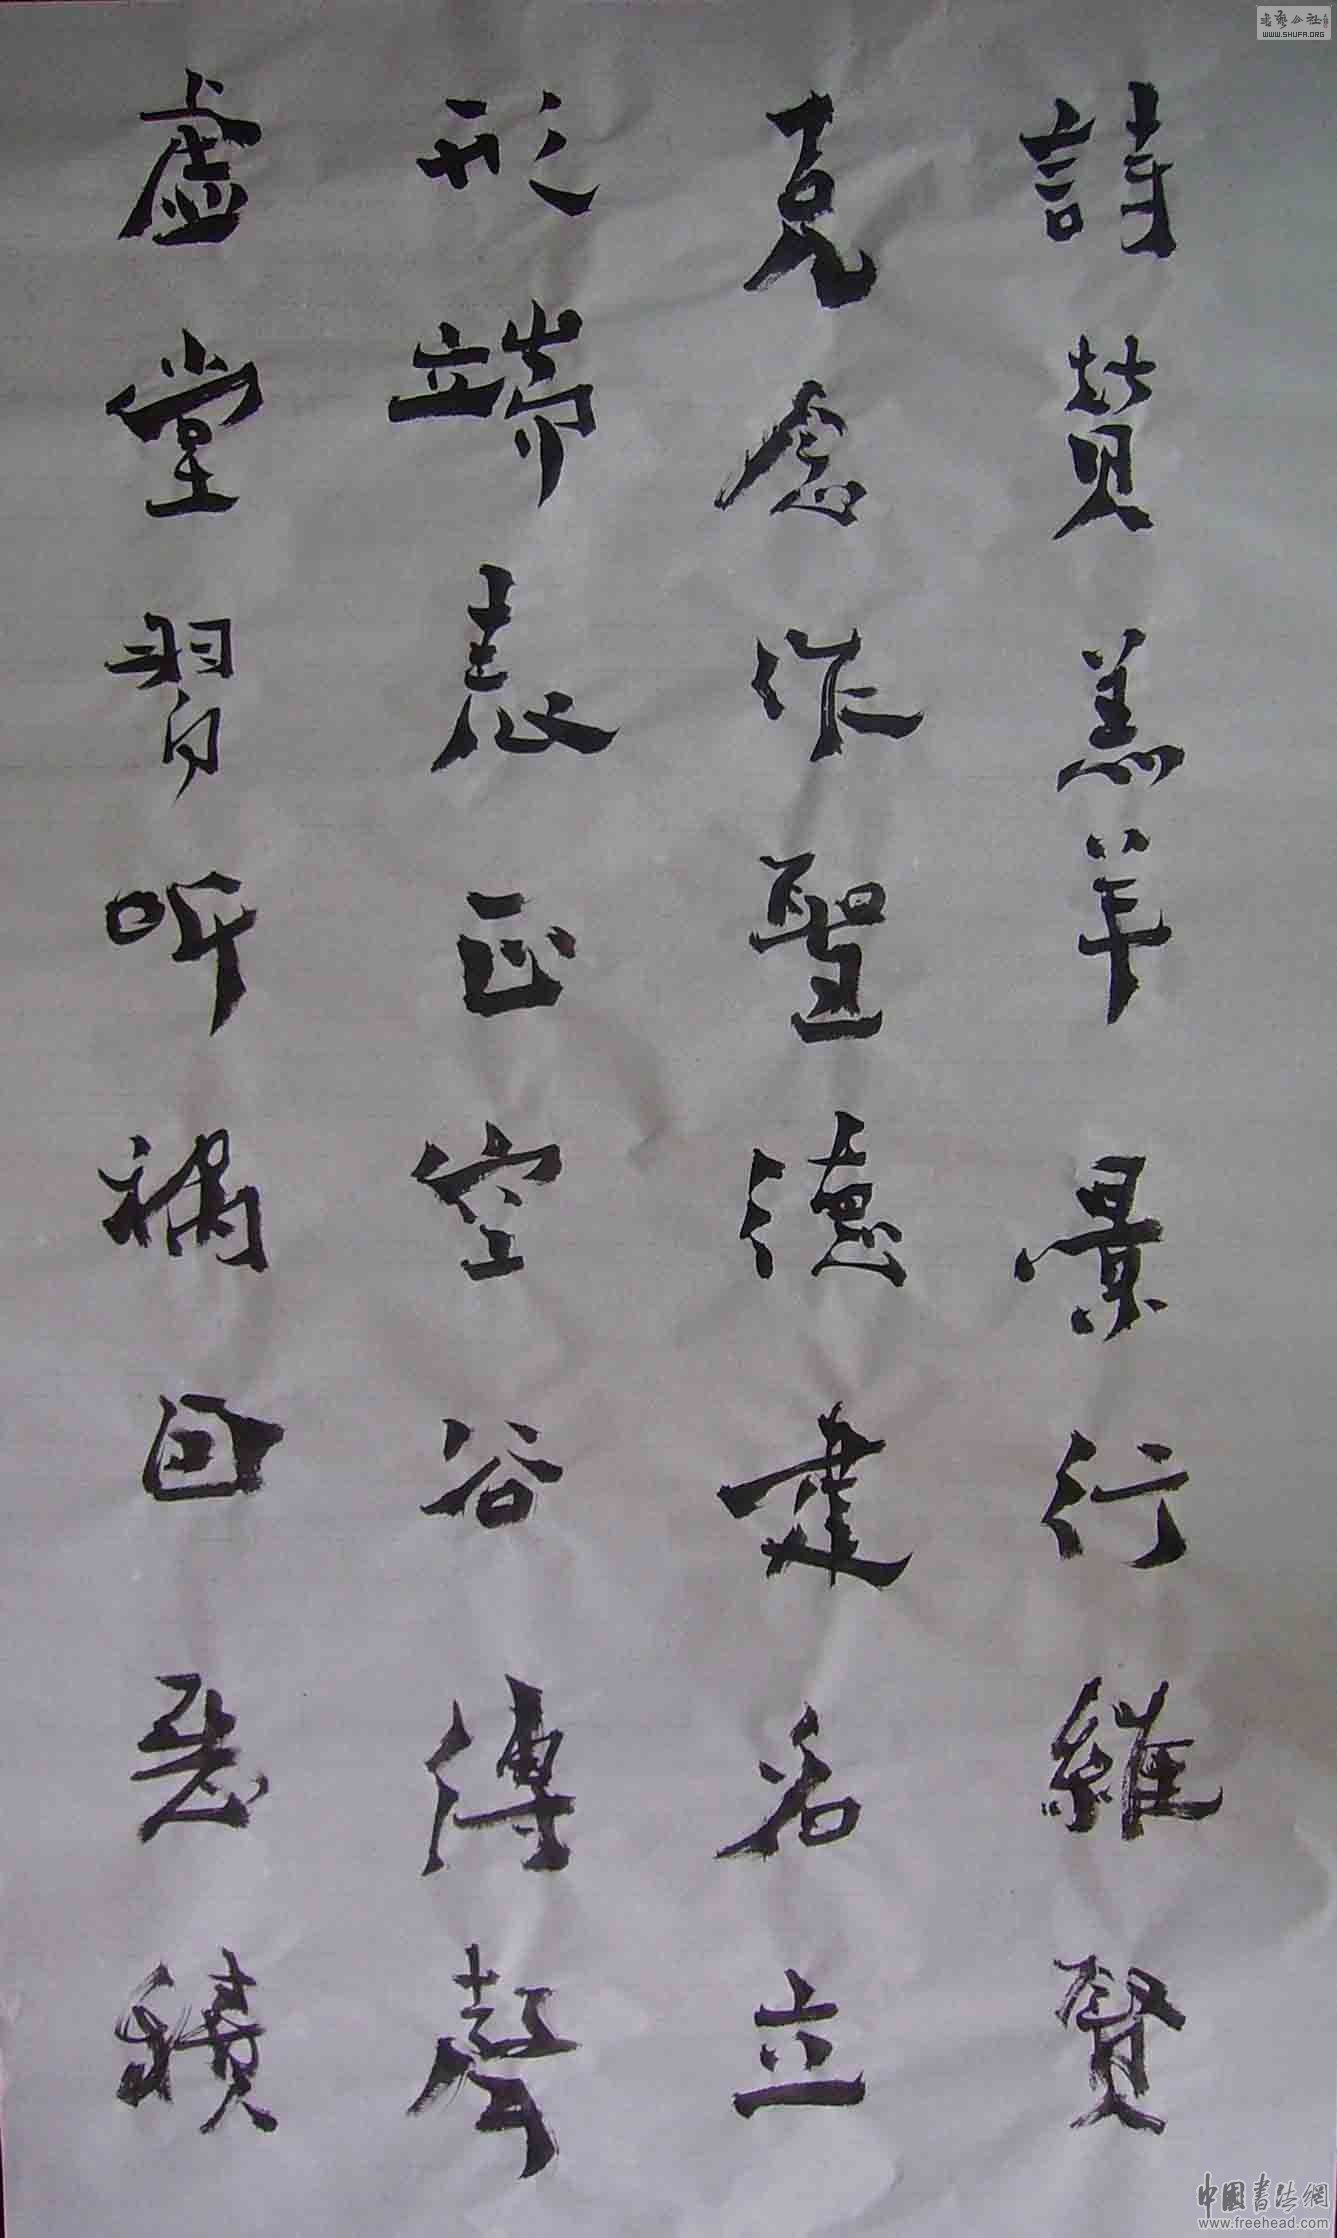 詩賛羔羊景行維賢
克念作聖德建名立
形端表正空谷傳聲
虛堂習听禍因惡積
WWW.SHUFA.ORG
中國書法網
www.freehead.com